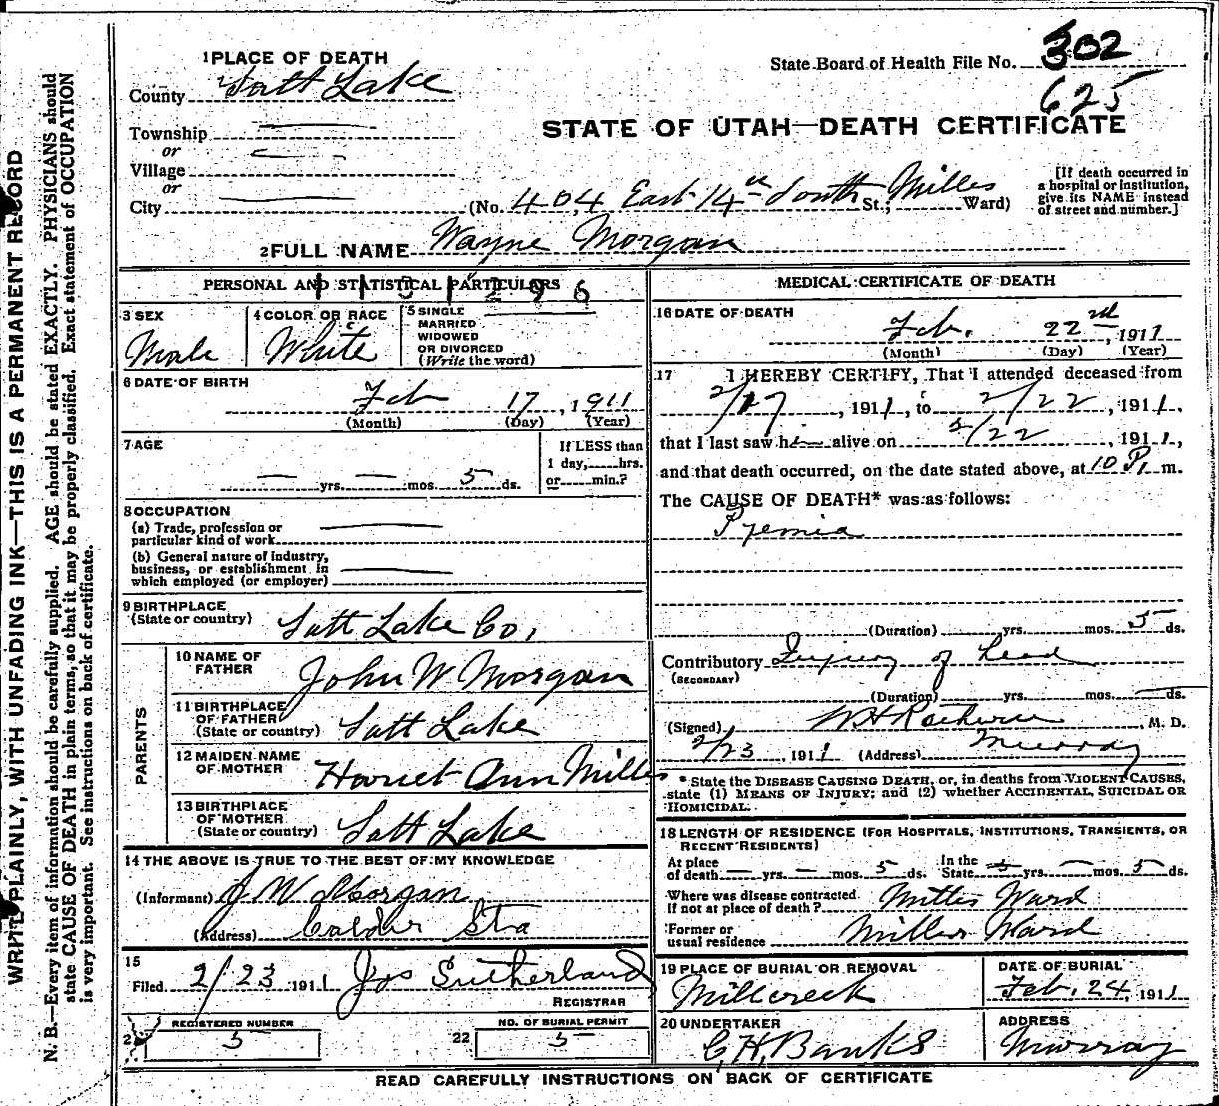 WRITE PLAINLY, WITH UNFADING INK—THIS IS A PERMANENT RECORD
N. B.—Every item of information should be carefully supplied. AGE should be stated EXACTLY. PHYSICIANS should
state CAUSE OF DEATH in plain terms, so that it may be properly classified. Exact statement of OCCUPATION
is very important. See instructions on back of certificate.
1 PLACE OF DEATH
County Salt Lake
Township
or
Village
or
City
State Board of Health File No. 302
625
STATE OF UTAH—DEATH CERTIFICATE
(No. 404 East 14th South St.; Miller Ward)
[If death occurred in
a hospital or institution,
give its NAME instead
of street and number.]
2 FULL NAME Wayne Morgan
PERSONAL AND STATISTICAL PARTICULARS
3 SEX
Male
4 COLOR OR RACE
White
5 SINGLE
MARRIED
WIDOWED
OR DIVORCED
(Write the word)
6 DATE OF BIRTH
Feb 17, 1911
(Month) (Day) (Year)
7 AGE
— yrs. — mos. 5 ds.
If LESS than
1 day, hrs.
or min.?
8 OCCUPATION
(a) Trade, profession or
particular kind of work
(b) General nature of industry,
business, or establishment in
which employed (or employer)
9 BIRTHPLACE
(State or country) Salt Lake Co,
PARENTS
10 NAME OF
FATHER John W Morgan
11 BIRTHPLACE
OF FATHER
(State or country) Salt Lake
12 MAIDEN NAME
OF MOTHER Harriet Ann Miller
13 BIRTHPLACE
OF MOTHER
(State or country) Salt Lake
14 THE ABOVE IS TRUE TO THE BEST OF MY KNOWLEDGE
(Informant) J W Morgan
(Address) Calder Sta
15
Filed 2/23 1911 Jos Sutherland
REGISTRAR
REGISTERED NUMBER
21 5
NO. OF BURIAL PERMIT
22 5
MEDICAL CERTIFICATE OF DEATH
16 DATE OF DEATH
Feb. 22nd, 1911
(Month) (Day) (Year)
17 I HEREBY CERTIFY, That I attended deceased from
2/17, 1911, to 2/22, 1911,
that I last saw h alive on 2/22, 1911,
and that death occurred, on the date stated above, at 10 P. m.
The CAUSE OF DEATH* was as follows:
Pyemia
(Duration) yrs. mos. 5 ds.
Contributory Injury of head
(SECONDARY)
(Duration) yrs. mos. — ds.
(Signed) M. D.
2/23 1911 (Address) Murray
* State the DISEASE CAUSING DEATH, or, in deaths from VIOLENT CAUSES,
state (1) MEANS OF INJURY; and (2) whether ACCIDENTAL, SUICIDAL OR
HOMICIDAL.
18 LENGTH OF RESIDENCE (FOR HOSPITALS, INSTITUTIONS, TRANSIENTS, OR
RECENT RESIDENTS)
At place
of death — yrs. — mos. 5 ds. In the
State yrs. — mos. 5 ds.
Where was disease contracted
If not at place of death? Miller Ward
Former or
usual residence Miller Ward
19 PLACE OF BURIAL OR REMOVAL
Millcreek
DATE OF BURIAL
Feb. 24, 1911
20 UNDERTAKER
C. H. Banks
ADDRESS
Murray
READ CAREFULLY INSTRUCTIONS ON BACK OF CERTIFICATE